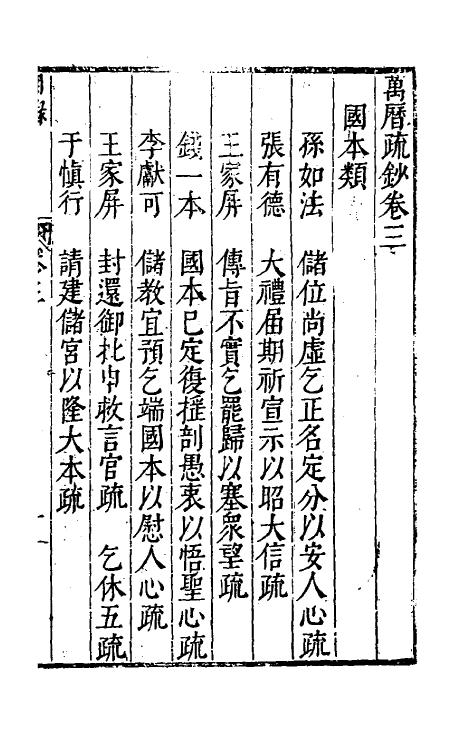 萬曆疏鈔卷三
國本類
孫如法　儲位尚虛乞正名定分以安人心疏
張有德　大禮届期祈宣示以昭大信疏
王家屏　傳旨不實乞罷歸以塞衆望疏
錢一本　國本已定復摇剖愚衷以悟聖心疏
李獻可　儲教宜預乞端國本以慰人心疏
王家屏　封還御批申救言官疏　乞休五疏
于慎行　請建儲宮以隆大本疏